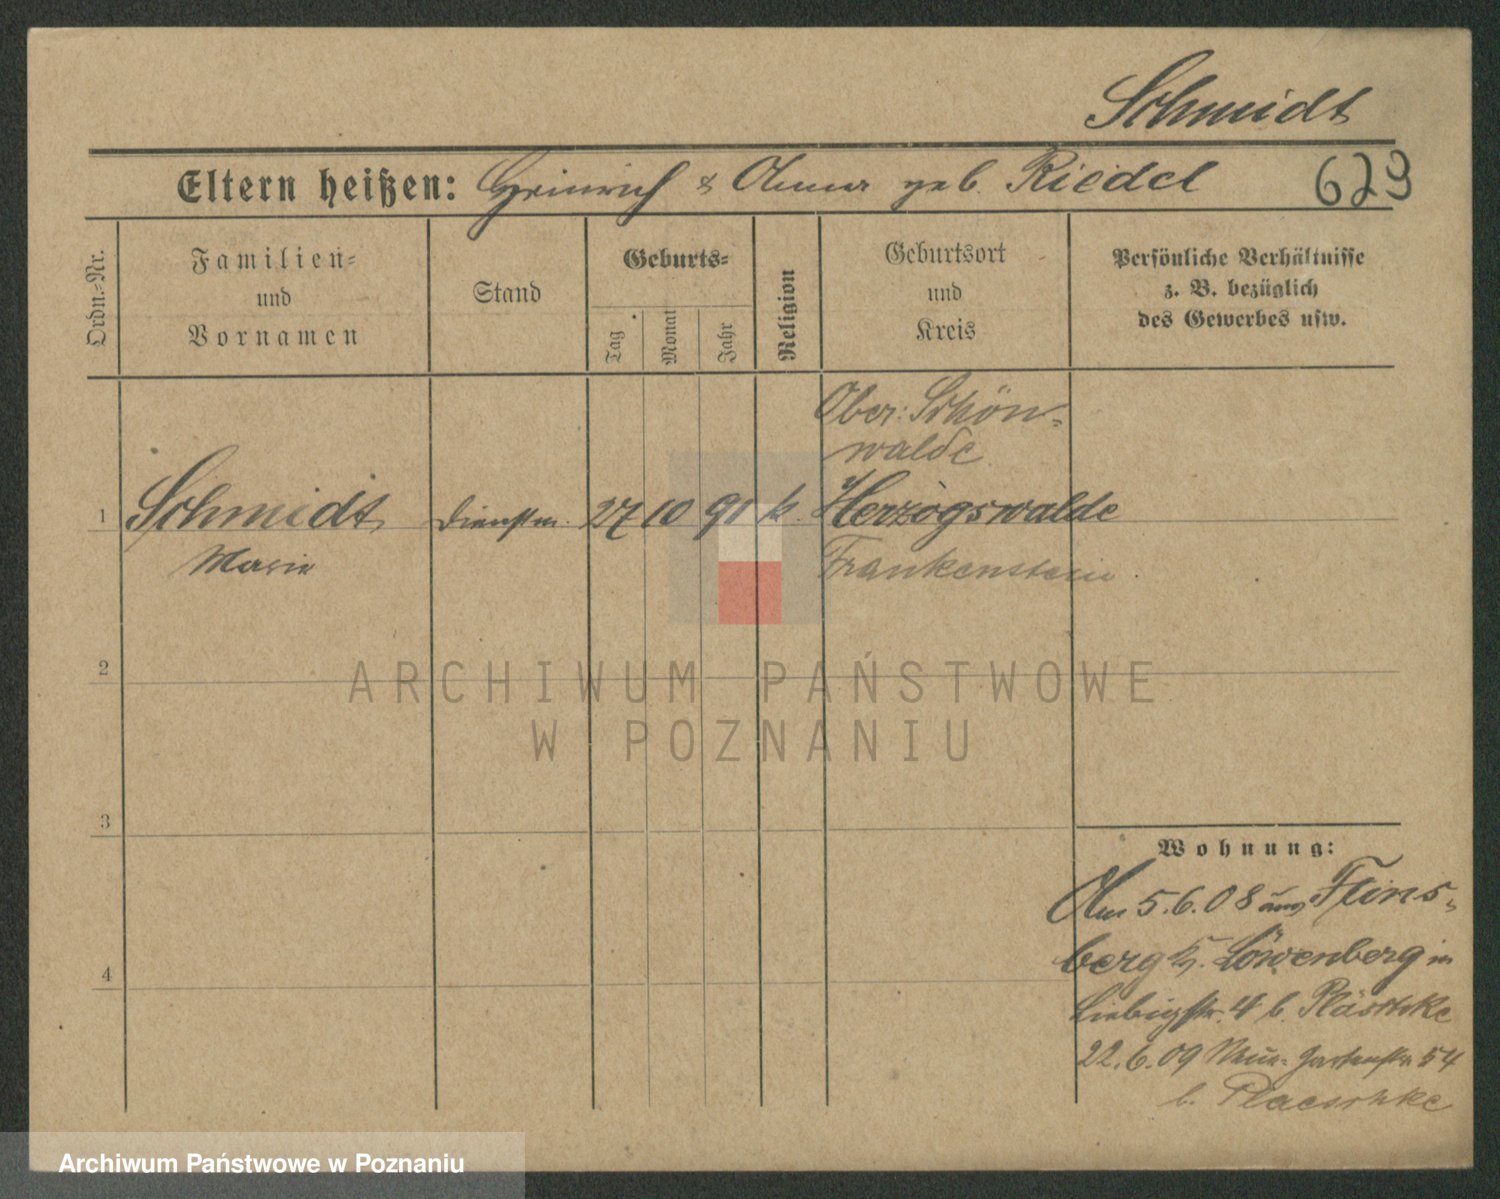 Schmidt
Eltern heißen: Heinrich & Anna geb. Riedel 629
Ordn.-Nr.
Familien-
und
Vornamen
Stand
Geburts-
Tag
Monat
Jahr
Religion
Geburtsort
und
Kreis
Persönliche Verhältnisse
z. B. bezüglich
des Gewerbes usw.
Ober: Schön-
walde
1 Schmidt Dienstm. 27 10 91 k. Herzogswalde
Marie Frankenstein.
2
ARCHIWUM PAŃSTWOWE
W POZNANIU
3
Wohnung:
Am 5.6.08 aus Flins-
berg Kr. Löwenberg in
4
Liebigstr. 4 b. Pläschke
22.6.09 Neue-Gartenstr. 54
b. Plaeschke
Archiwum Państwowe w Poznaniu